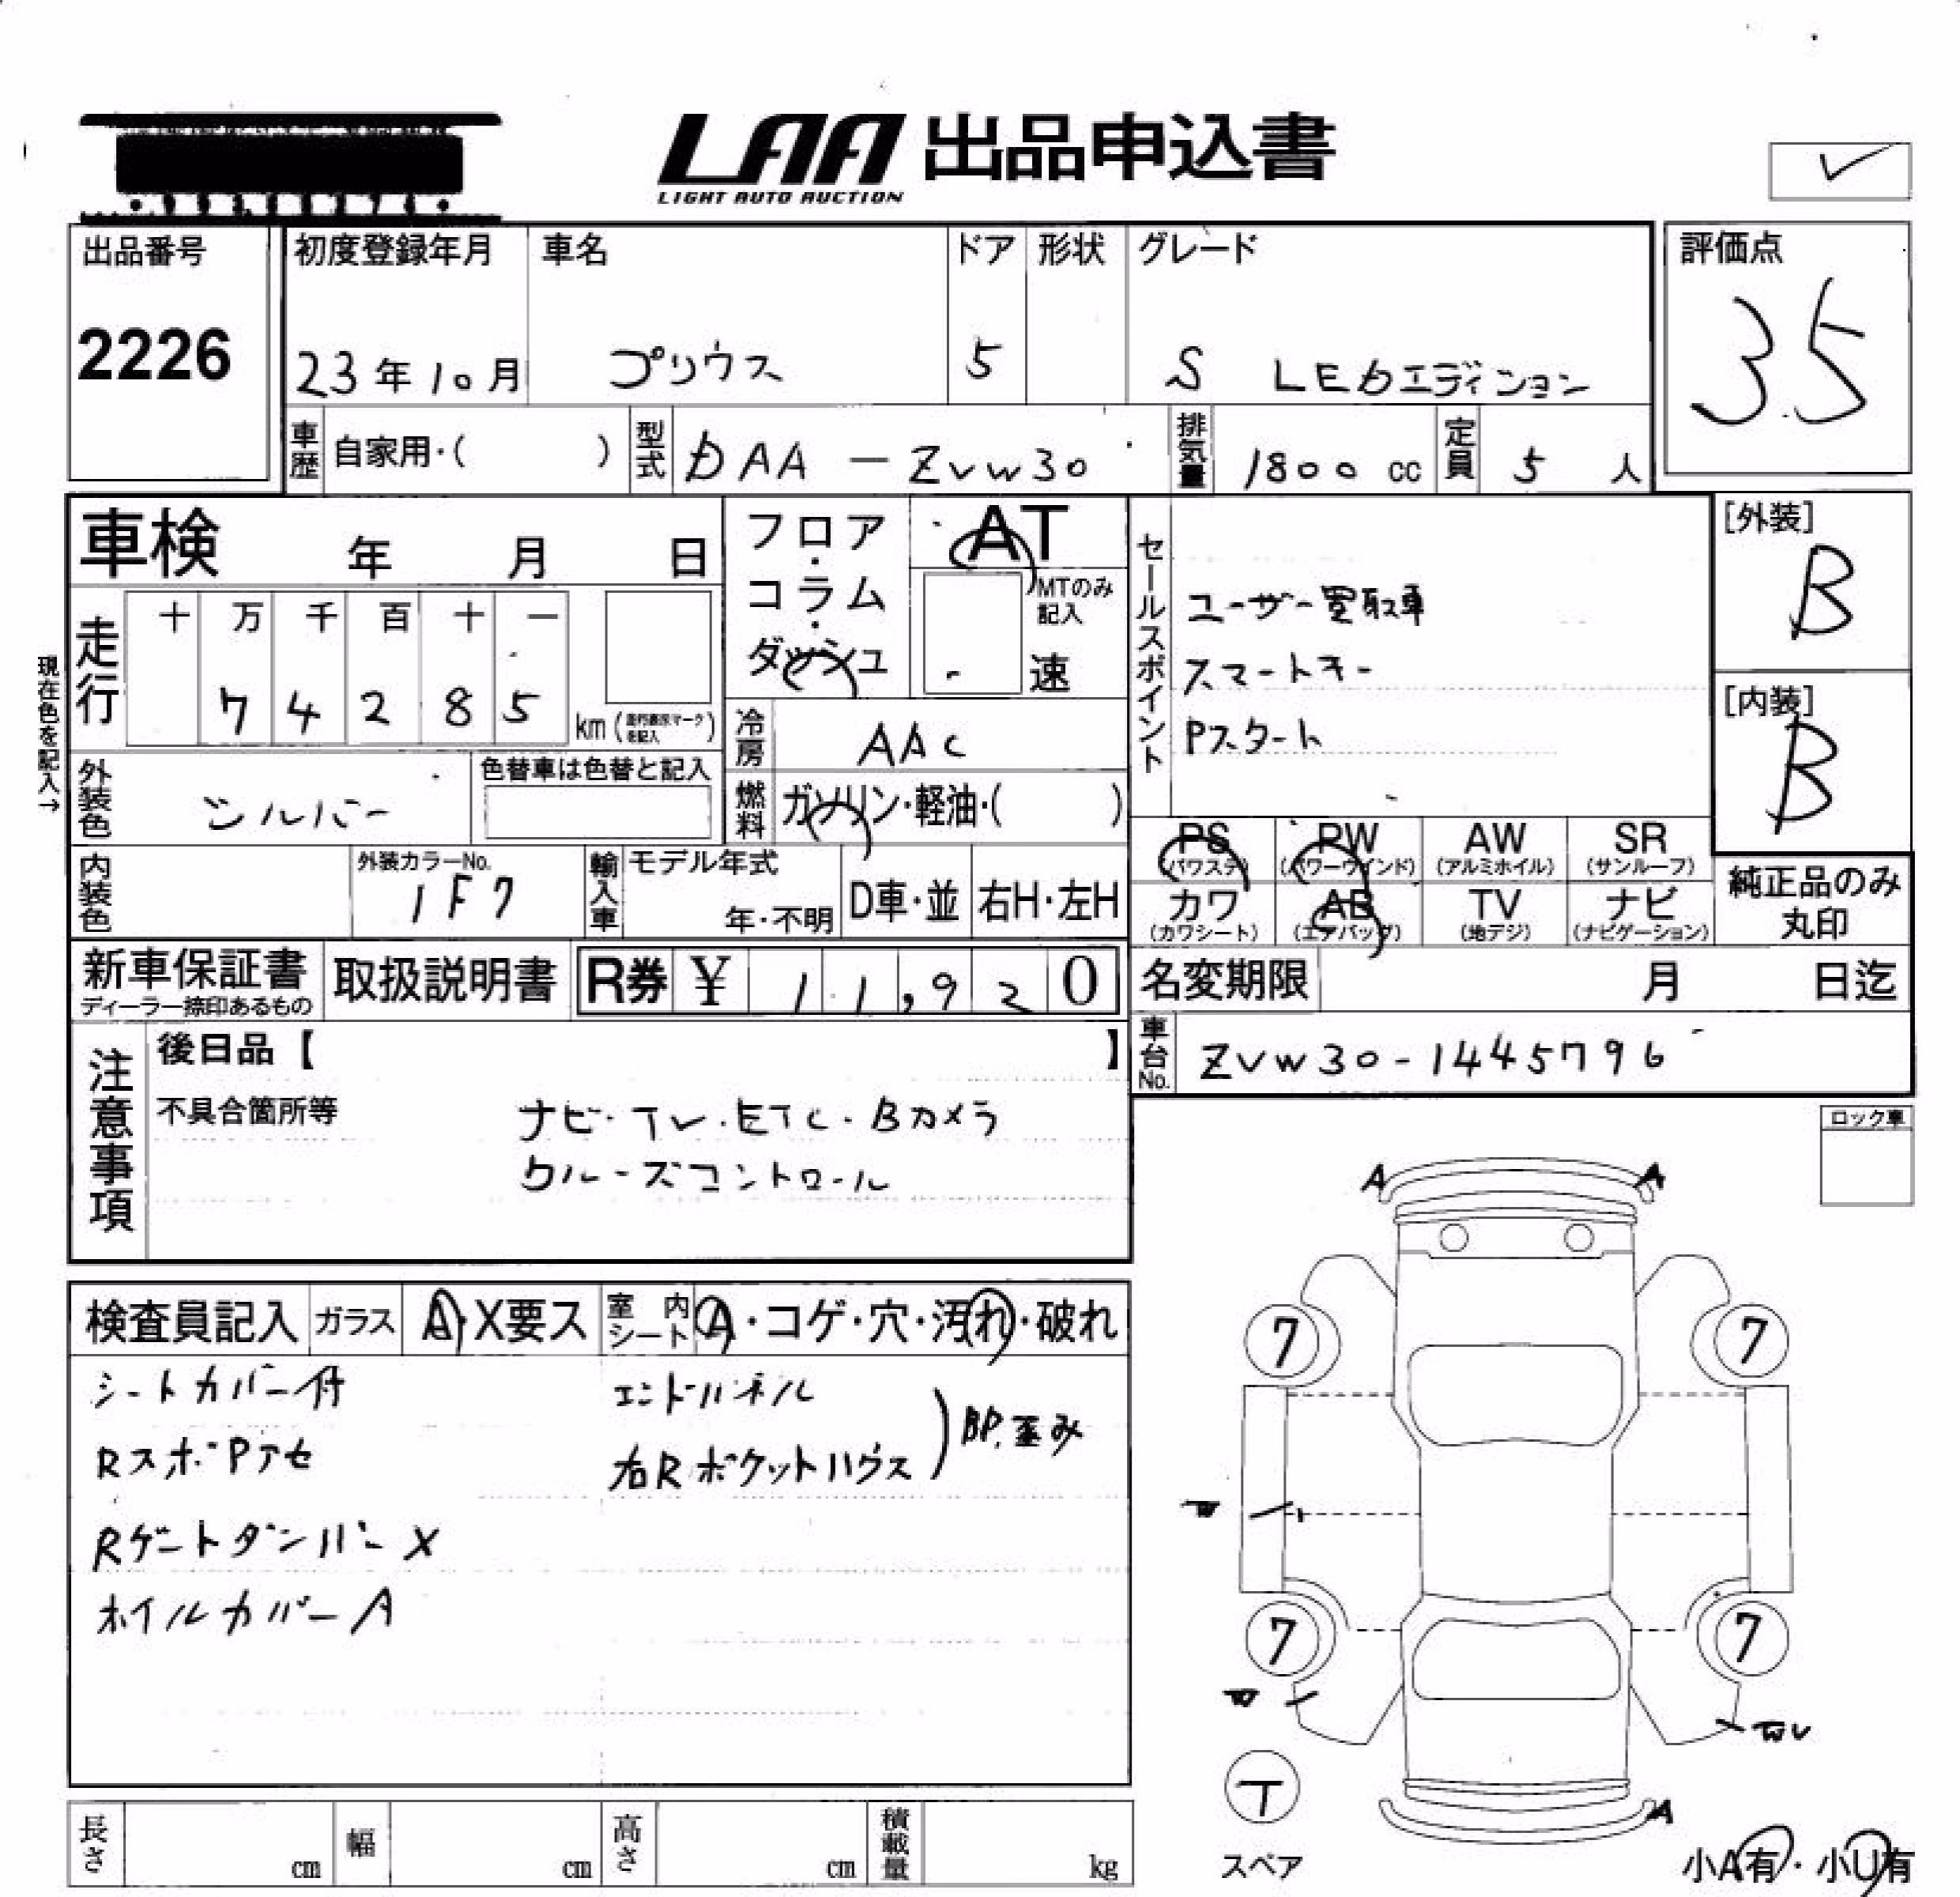 LAA 出品申込書
LIGHT AUTO AUCTION
出品番号
2226
初度登録年月
23年10月
車名
プリウス
ドア
5
形状
グレード
S LEDエディション
評価点
3.5
車歴 自家用・( )
型式 DAA-ZVW30
排気量 1800 cc
定員 5 人
車検 年 月 日
フロア・コラム・ダッシュ
AT
MTのみ記入
速
走行
十 万 千 百 十 一
7 4 2 8 5
km(走行表示マークを記入)
現在色を記入→
外装色 シルバー
色替車は色替と記入
冷房 AAC
燃料 ガソリン・軽油・( )
内装色
外装カラーNo.
1F7
輸入車
モデル年式
年・不明
D車・並
右H・左H
セールスポイント
ユーザー買取車
スマートキー
Pスタート
[外装]
B
[内装]
B
PS (パワステ)
PW (パワーウインド)
AW (アルミホイル)
SR (サンルーフ)
カワ (カワシート)
AB (エアバッグ)
TV (地デジ)
ナビ (ナビゲーション)
純正品のみ丸印
新車保証書
ディーラー捺印あるもの
取扱説明書
R券 ¥ 11,920
名変期限 月 日迄
車台No. ZVW30-1445796
注意事項
後日品【 】
不具合箇所等
ナビ・TV・ETC・Bカメラ
クルーズコントロール
ロック車
検査員記入
ガラス A・X要ス
室内シート A・コゲ・穴・汚れ・破れ
シートカバー付
RスポPアセ
RゲートダンパーX
ホイルカバーA
エンドパネル
右Rポケットハウス
BP,歪み
A A
7 7
W
7 7
W
WU
T
スペア
A
小A有・小U有
長さ cm
幅 cm
高さ cm
積載量 kg